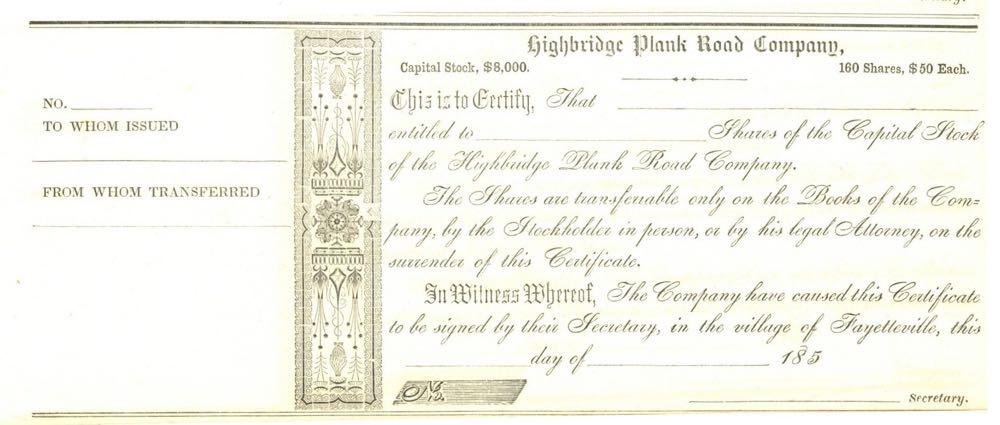 NO.
TO WHOM ISSUED
FROM WHOM TRANSFERRED
Highbridge Plank Road Company,
Capital Stock, $8,000.
160 Shares, $50 Each.
This is to Certify, That
entitled to Shares of the Capital Stock
of the Highbridge Plank Road Company.
The Shares are transferiable only on the Books of the Com=
pany, by the Stockholder in person, or by his legal Attorney, on the
surrender of this Certificate.
In Witness Whereof, The Company have caused this Certificate
to be signed by their Secretary, in the village of Fayetteville, this
day of 185
No.
Secretary.